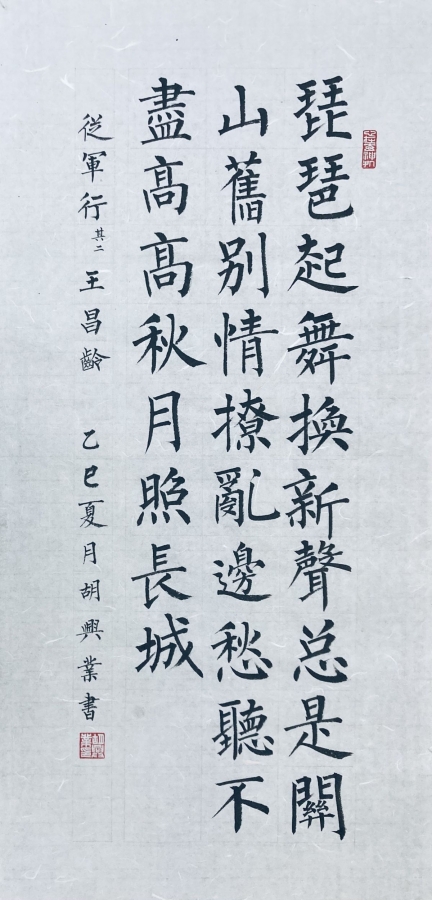 琵琶起舞換新聲总是關
山舊别情撩亂邊愁聽不
盡髙髙秋月照長城
從軍行其二 王昌齡 乙巳夏月胡興業書